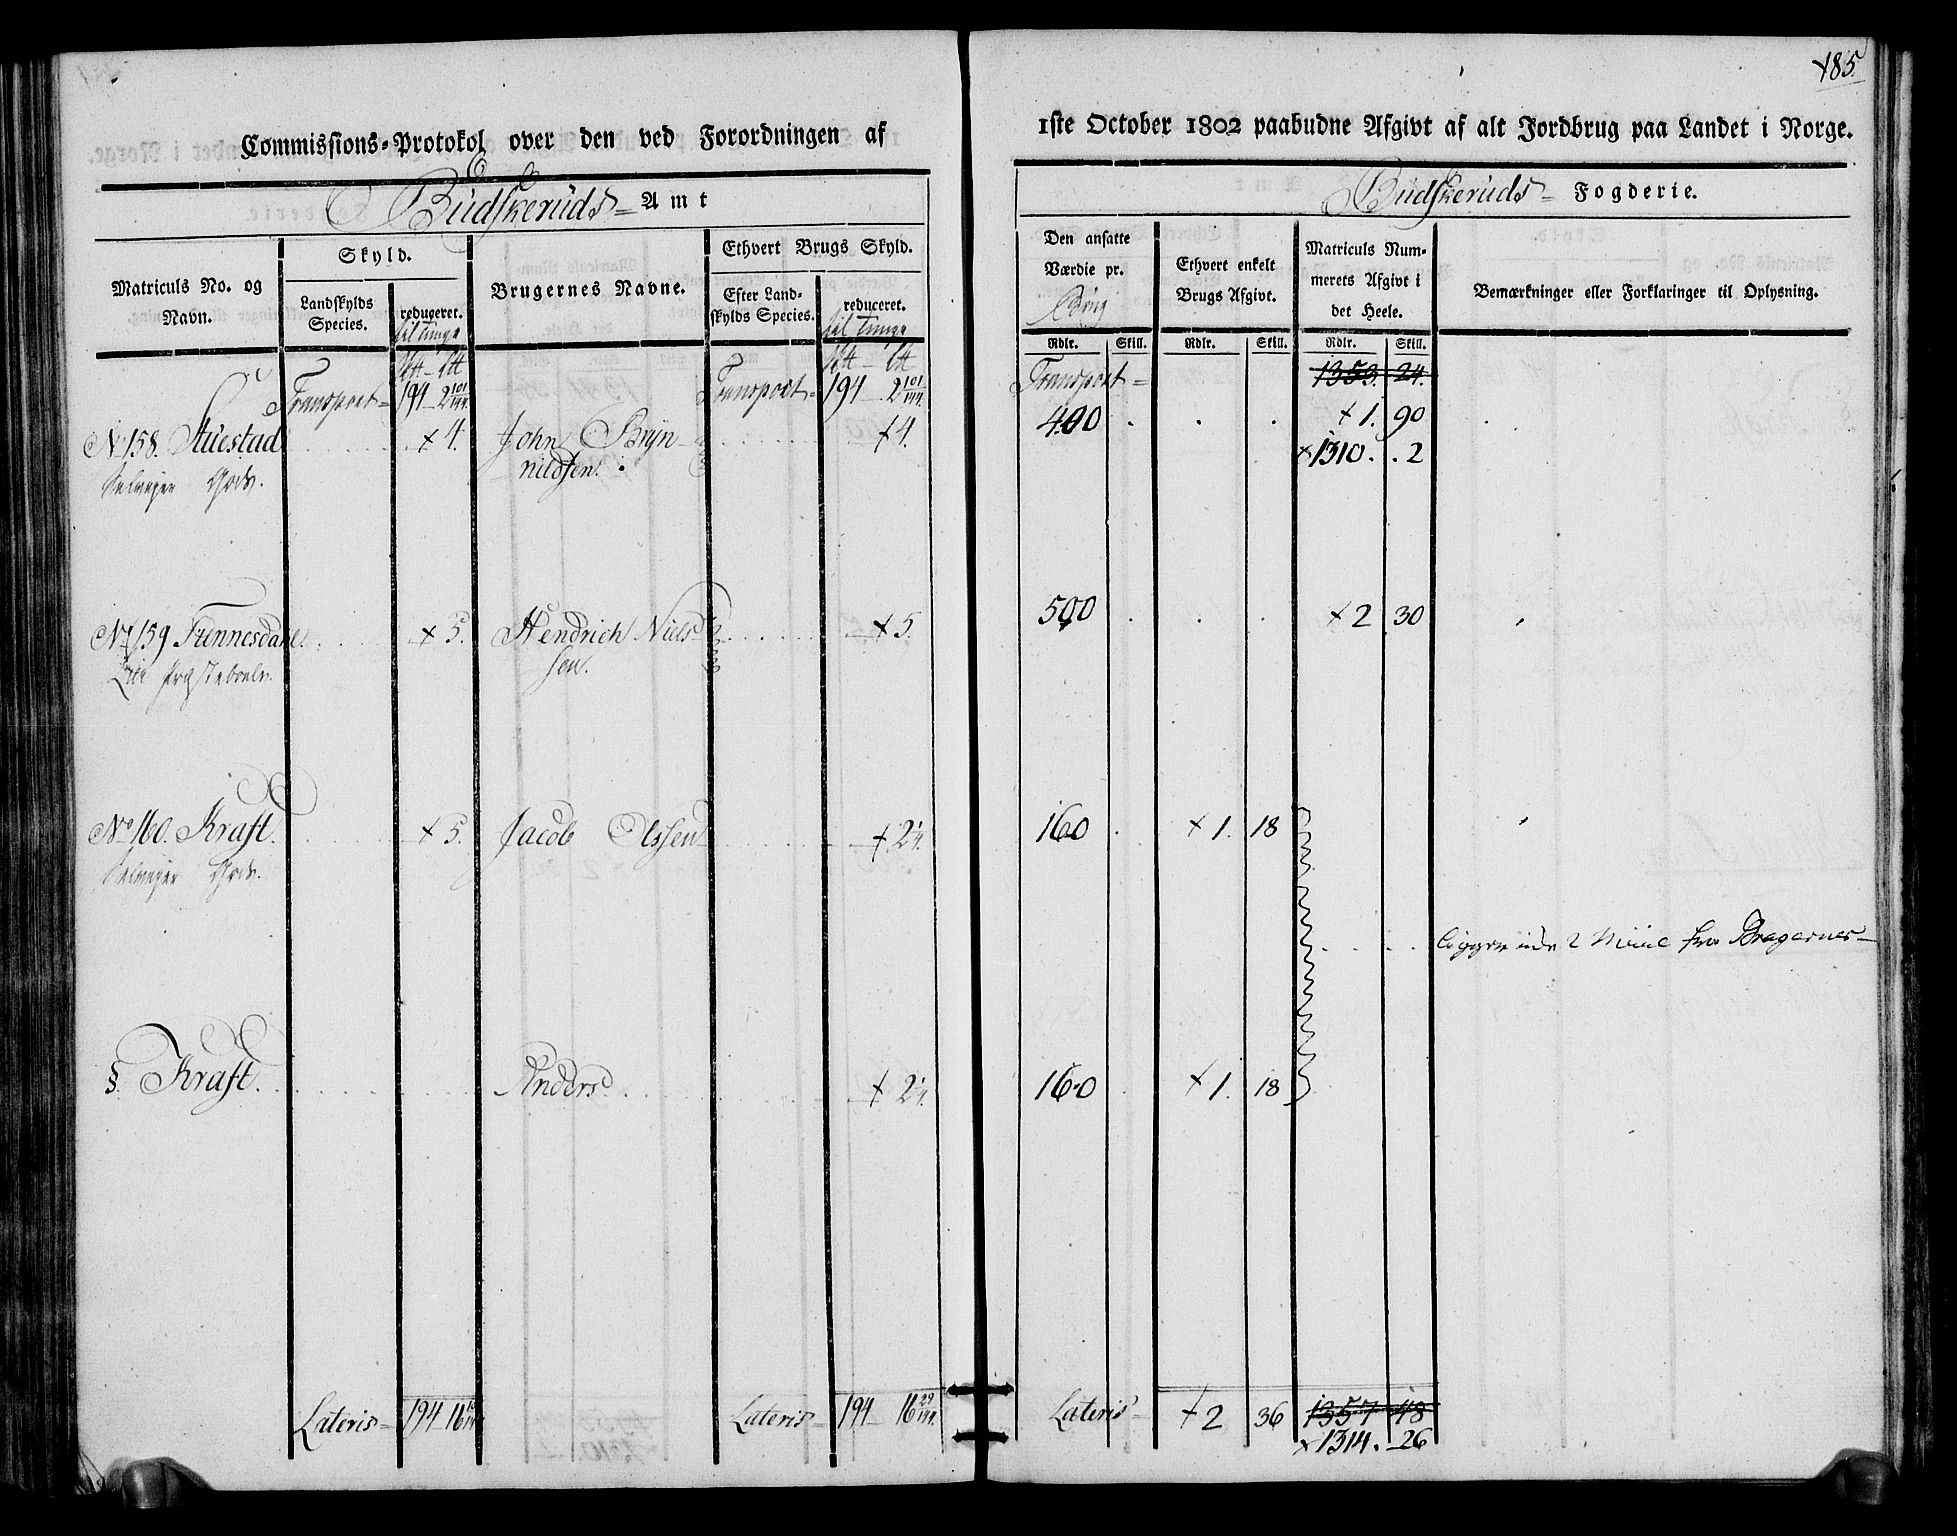 185.
Commissions-Protokol over den ved Forordningen af
1ste October 1802 paabudne Afgivt af alt Jordbrug paa Landet i Norge.
Budskeruds Amt
Budskeruds Fogderie.
Matriculs No. og Navn.
Skyld.
Landskylds Species.
reduceret.
til Tunge
Brugernes Navne.
Ethvert Brugs Skyld.
Efter Landskylds Species.
reduceret.
til Tunge
Den ansatte Værdie pr.
Ethvert enkelt Brugs Afgivt.
Matriculs Nummerets Afgivt i det Heele.
Bemærkninger eller Forklaringer til Oplysning.
Rdlr. Skill. Rdlr. Skill. Rdlr. Skill.
Transport 194 2 101/144 Transport 194 2 101/144 Transport 1353. 24.
No 158. Stuestad + 4. John Bryn- + 4. 400 + 1. 90
Gods. nildsen. × 1310. 2
No 159 Tunnesdahl + 5. Hendrich Niels + 5. 500 + 2 30
Lier Præsteboele sen.
No 160. Kraft. + 5. Jacob Olssen + 2½. 160 + 1. 18
Gods.
ligger 2 Miile fra Bragernes
§. Kraft. Anders + 2½. 160 + 1. 18
Lateris 194 16 Lateris 194 16 29/144. Lateris + 2 36 1357 48
× 1314. 26